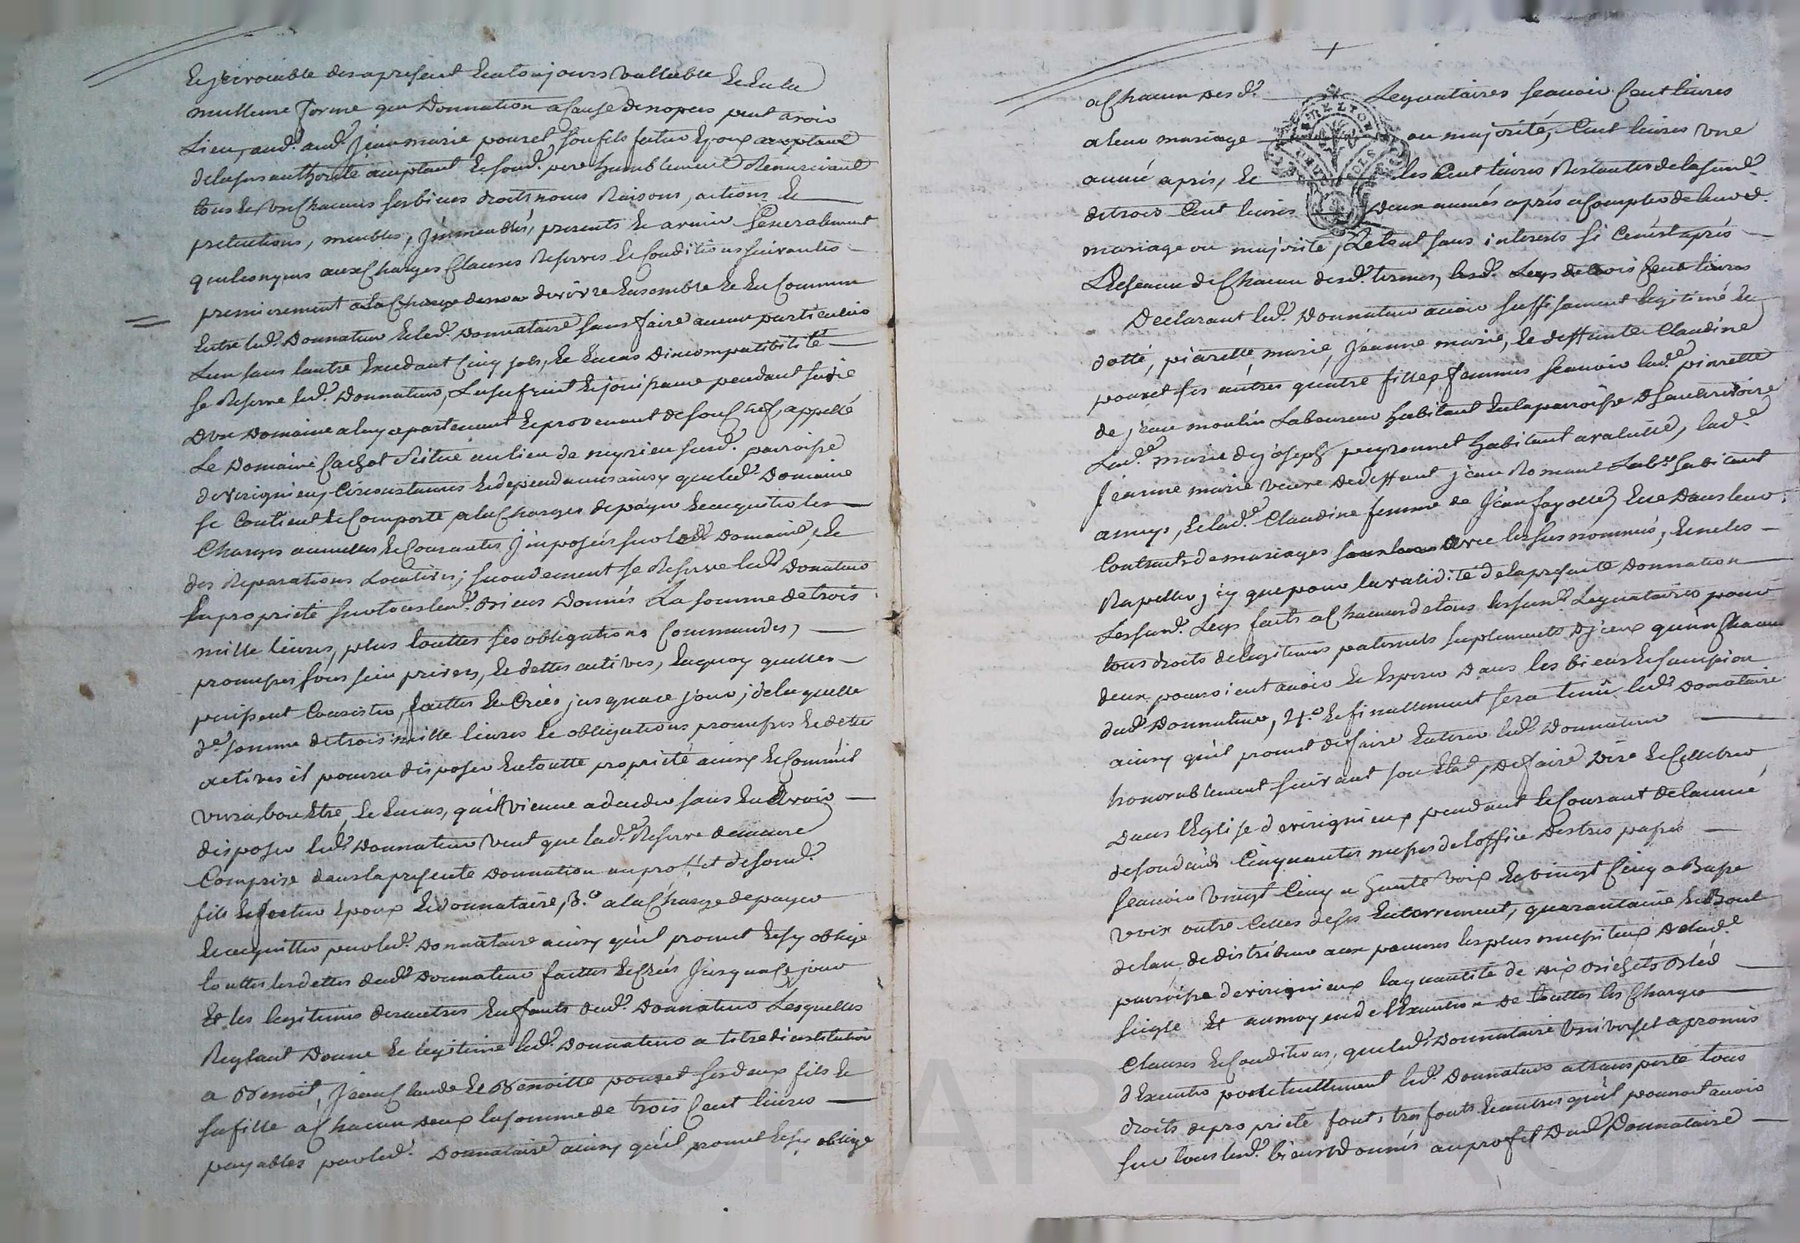 et jrrevocable des apresent et a toujours vallable et en la
meilleure forme que Donnation a cause de nopces peut avoir
Lieu, aud. jean marie pouzet son fils futur Epoux acceptant
de la susd authorité acceptant et son d. pere humblement Remerciant
tous et un chacuns ses biens droits noms Raisons, actions et
pretentions, meubles, jmmeubles, presents et avenir Generalement
quelconques aux charges Clauses Reserves et Conditions suivantes
premierement a la charge de vivre Ensemble et En Commun
Entre led. Donnateur et led. Donnataire sans faire aucun particulier
L'un sans l'autre Excedant Cinq sols, et En cas D'incompatibilité
se Reserve led. Donnateur, L'usufruit et jouissance pendant sa vie
D'un Domaine a luy apartenant et provenant de son chef, appellé
Le Domaine Cachet scitué au lieu de meyrieu sus d. parroisse
de verignieu, Circonstances et dependances ainsy que led. Domaine
se Contient et Comporte, a la charge de payer et acquitter les
Charges annuelles et Courantes jmposées sur led. Domaine, et
des Reparations Locatives; secondement se Reserve led. Donateur
En propriété sur tous les d. Biens Donnés La somme de trois
mille livres, plus touttes ses obligations Commandes,
promesses sous sein privées, et dettes actives, En quoy qu'elles
puissent Consister, faittes et Créés jusqu'a ce jour, de la quelle
de. somme de trois mille livres et obligations promesses et dettes
actives il pourra disposer En toutte propriété ainsy et Comm'il
verra bon Etre, Et En cas, qu'il vienne a deceder sans En avoir
disposer led. Donnateur veut que lad. Reserve demeure
Comprise dans la presente Donnation au proffit de son d.
fils et futur Epoux et Donnataire, 3.° a la Charge de payer
et acquitter par led. Donnataire ainsy qu'il promet et s'y oblige
touttes les dettes dud. Donnateur faittes et Créés jusqu'a ce jour
Et les legitimes des autres Enfants dud. Donnateur Lesquelles
Reglant Donne et legitime led. Donnateur a titre d'institution
a Benoit, jean Claude et Benoitte pouzet ses deux fils et
sa fille a Chacun deux la somme de trois Cent livres
payables par led. Donnataire ainsy qu'il promet et s'y oblige
a Chacun desd. Legataires scavoir Cent livres
a leur mariage ou majorité, Cent livres une
année après, et les Cent livres Restantes de la susd.
de trois Cent livres Deux années après a Compter de leurd.
mariage ou majorité, Le tout sans interests si ce n'est après
L'Echeance de Chacun desd. termes, lesd. Legs de trois Cent livres
Declarant led. Donnateur avoir suffisament legitimé et
dotté, pierrette marie, jeanne marie, et deffunte Claudine
pouzet ses autres quatre filles femmes scavoir lad. pierrette
de jean moulin Laboureur habitant En la parroisse de
Lad. marie de joseph peyronnet habitant a valeille, lad.
jeanne marie veuve de deffunt jean Romand Labr. habitant
a meys, et lad. Claudine femme de jean fayolle, Et ce Dans leur
Contrats de mariages avec les sus nommés, Et ne les
Rapelle jcy que pour la validité de la presente Donnation
LesSusd. Legs faits a Chacun de tous les susd. Legataires pour
tous droits de legitimes paternels suplements d'jceux qu'un Chacun
deux pourroient avoir et Esperer Dans les biens et succession
dud. Donnateur, 4.° et finallement sera tenû led. Donnataire
ainsy qu'il promet de faire Enterrer led. Donnateur
honorablement suivant son Etat, De faire Dire et Celebrer
Dans l'Eglise de verignieux pendant le Courant de l'année
de son deces Cinquantes messes de l'office des tres passés
scavoir vingt Cinq a haute voix Et vingt Cinq a Basse
voix outre Celles de son Enterrement, quarantaine et Bout
de l'an, de distribuer aux pauvres les plus necessiteux de lad.
parroisse de verignieux la quantité de six Bichets Bled
seigle Et au moyen de l'Execution de touttes les Charges
Clauses et Conditions, que led. Donnataire Universel a promis
d'Executer ponctuellement led. Donnateur a transporté tous
droits de propriété fonds, tres fonds et autres qu'il pouvoit avoir
sur tous lesd. biens Donnés au profit Dud. Donnataire